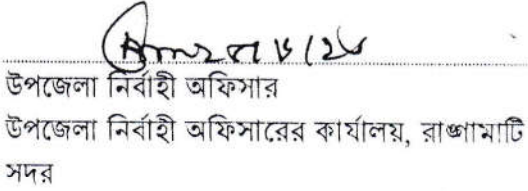 উপজেলা নির্বাহী অফিসার
উপজেলা নির্বাহী অফিসারের কার্যালয়, রাঙ্গামাটি
সদর